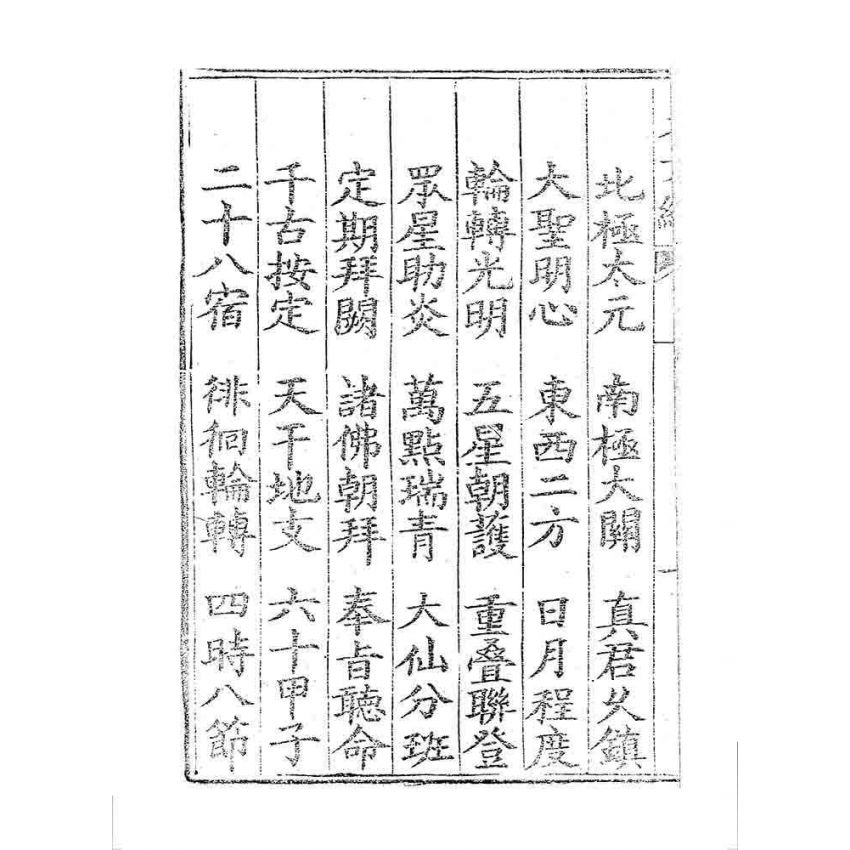 北極太元 南極大關 真君久鎮
大聖明心 東西二方 日月程度
輪轉光明 五星朝護 重疊聯登
眾星助炎 萬點瑞青 大仙分班
定期拜闕 諸佛朝拜 奉旨聽命
千古按定 天干地支 六十甲子
二十八宿 徘徊輪轉 四時八節